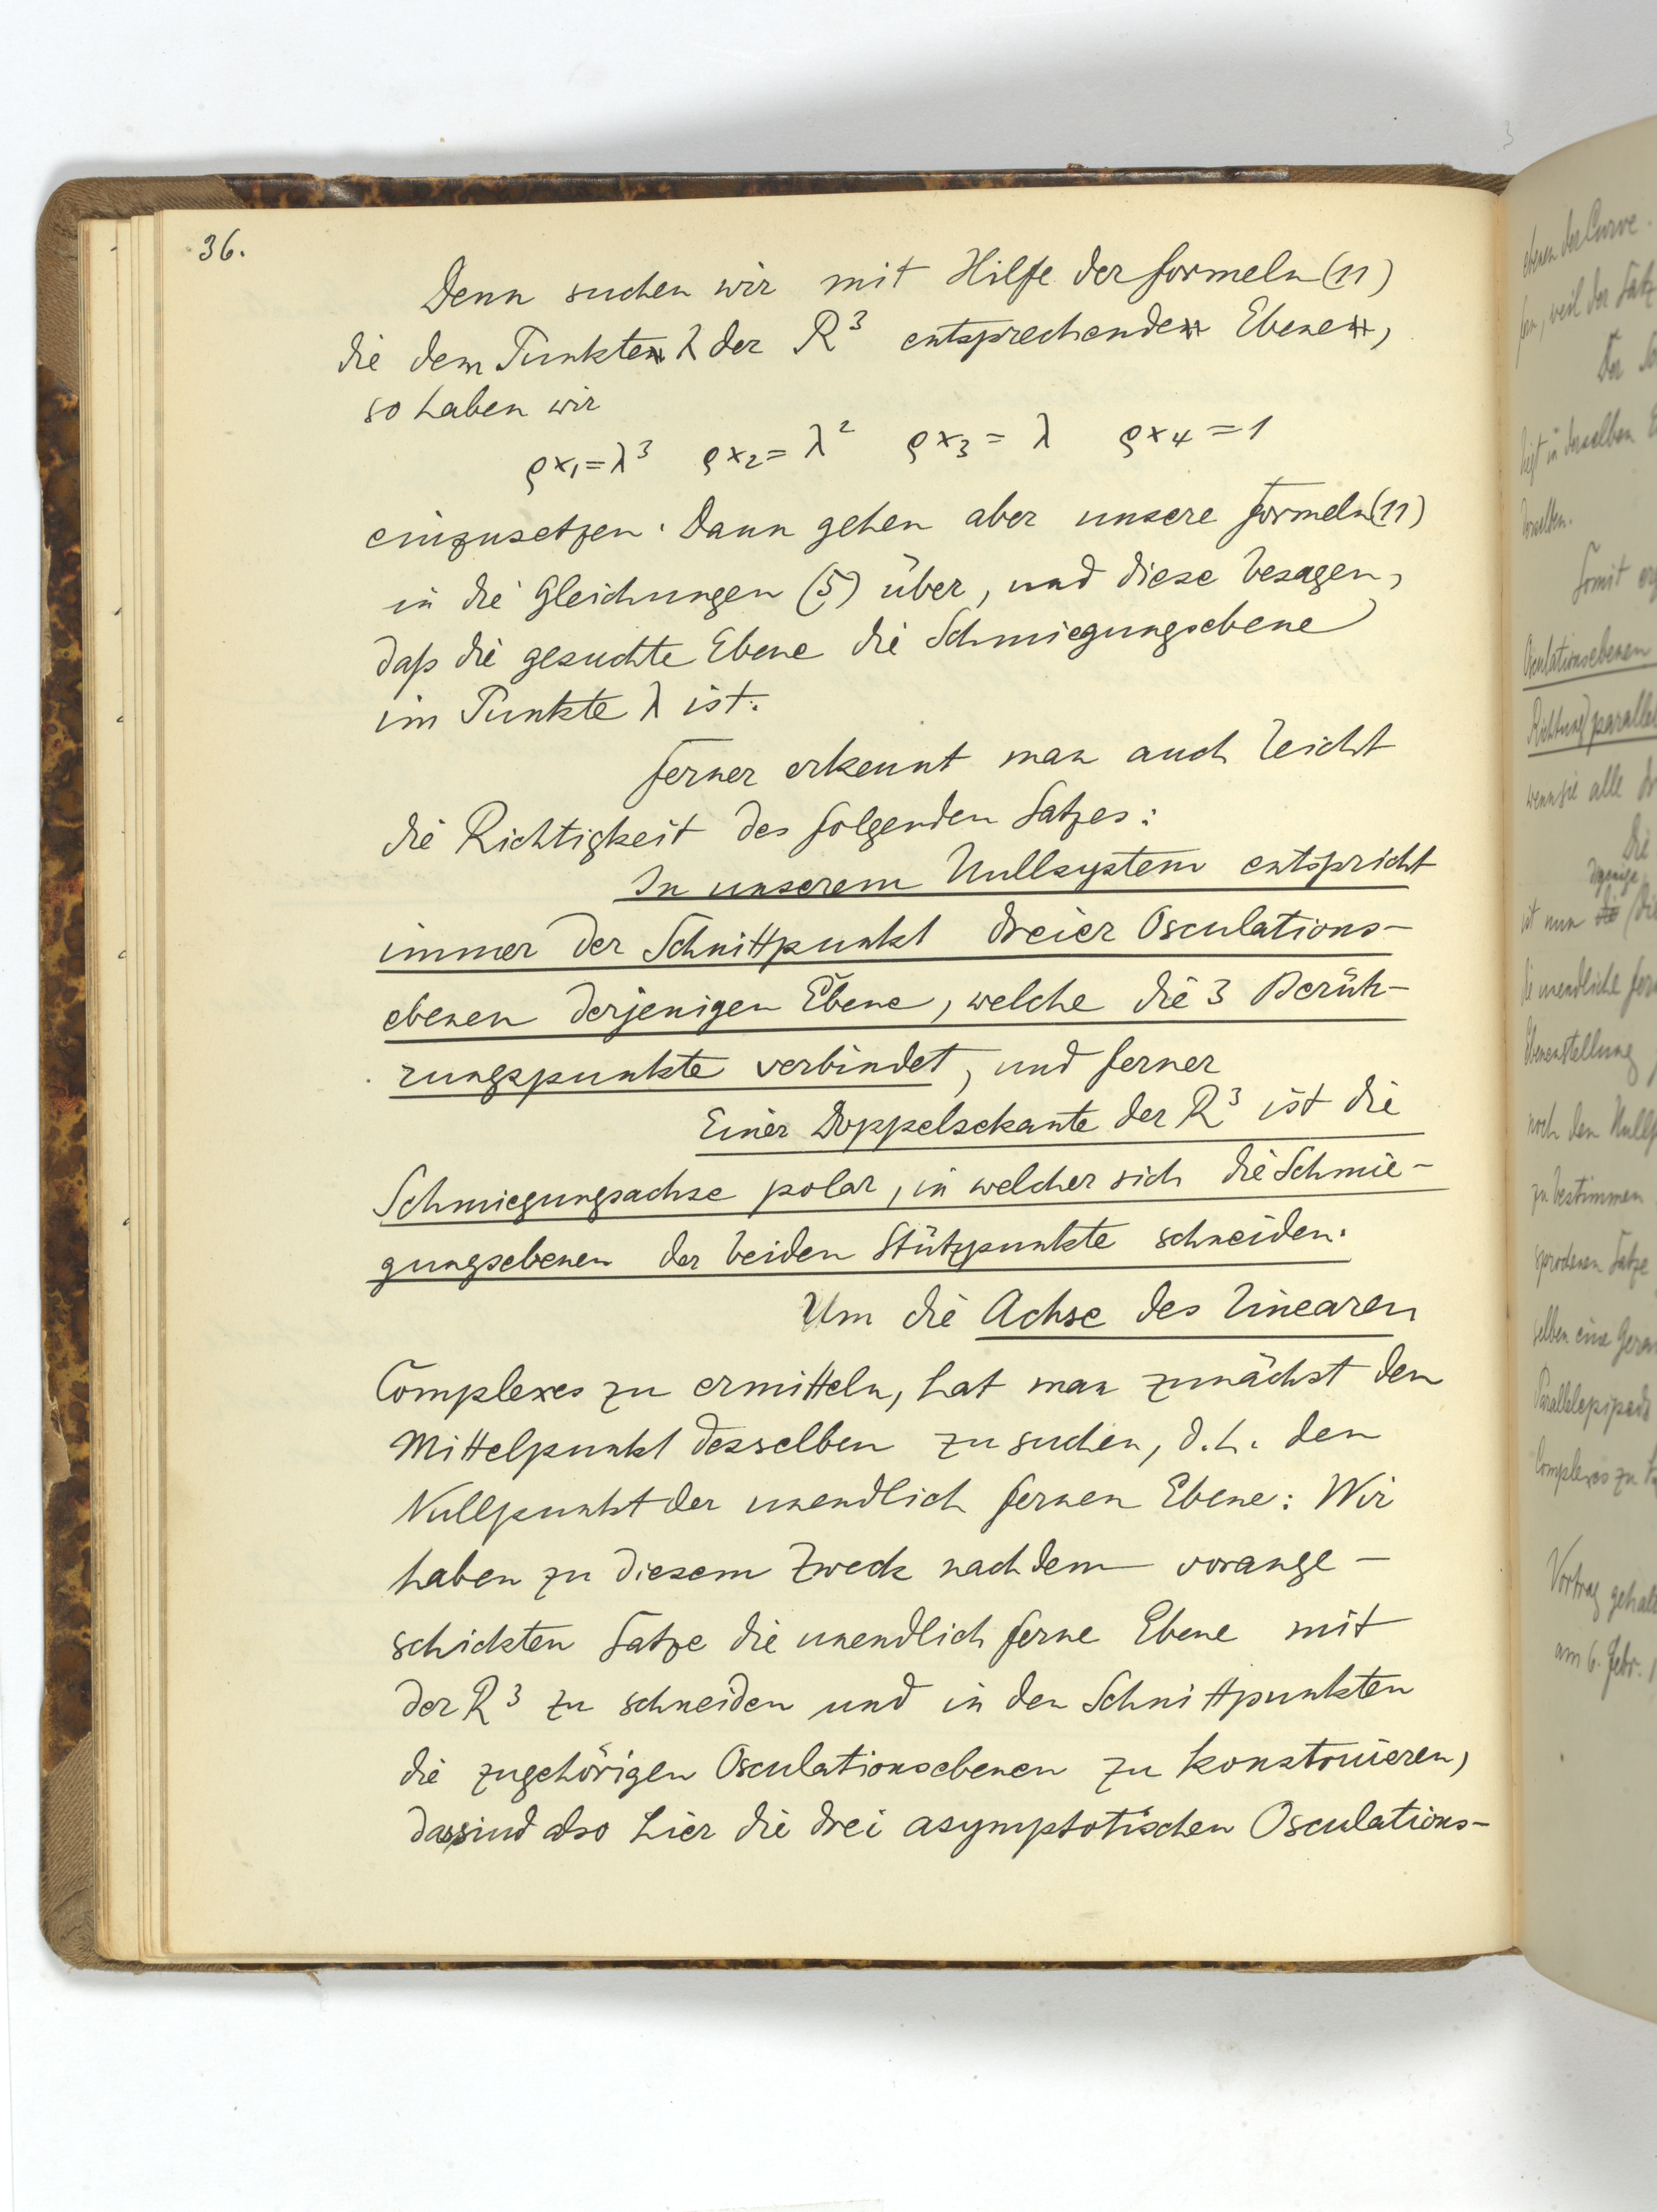 36.
Denn suchen wir mit Hilfe der Formeln (11)
die dem Punkte λ der R³ entsprechende Ebene,
so haben wir
ρx₁=λ³ ρx₂=λ² ρx₃=λ ρx₄=1
einzusetzen. Dann gehen aber unsere Formeln (11)
in die Gleichungen (5) über, und diese besagen,
daß die gesuchte Ebene die Schmiegungsebene
im Punkte λ ist.
Ferner erkennt man auch leicht
die Richtigkeit des folgenden Satzes:
In unserem Nullsystem entspricht
immer der Schnittpunkt dreier Osculations-
ebenen derjenigen Ebene, welche die 3 Berüh-
rungspunkte verbindet, und ferner
Einer Doppelsekante der R³ ist die
Schmiegungsachse polar, in welcher sich die Schmie-
gungsebenen der beiden Stützpunkte schneiden.
Um die Achse des linearen
Complexes zu ermitteln, hat man zunächst den
Mittelpunkt desselben zu suchen, d.h. den
Nullpunkt der unendlich fernen Ebene: Wir
haben zu diesem Zweck nach dem vorange-
schickten Satze die unendlich ferne Ebene mit
der R³ zu schneiden und in den Schnittpunkten
die zugehörigen Osculationsebenen zu konstruieren,
das sind also hier die drei asymptotischen Osculations-
ebenen der Curve.
weil der Satz
Der
liegt in derselben
derselben.
Somit
Osculationsebenen
Richtung parallel
wenn sie alle
Die
diejenige
ist nun die
die unendliche
Ebenenstellung
noch den
zu bestimmen
Satze
selben eine
Parallelepipeds
Complexes zu
Vortrag
am 6. Febr.